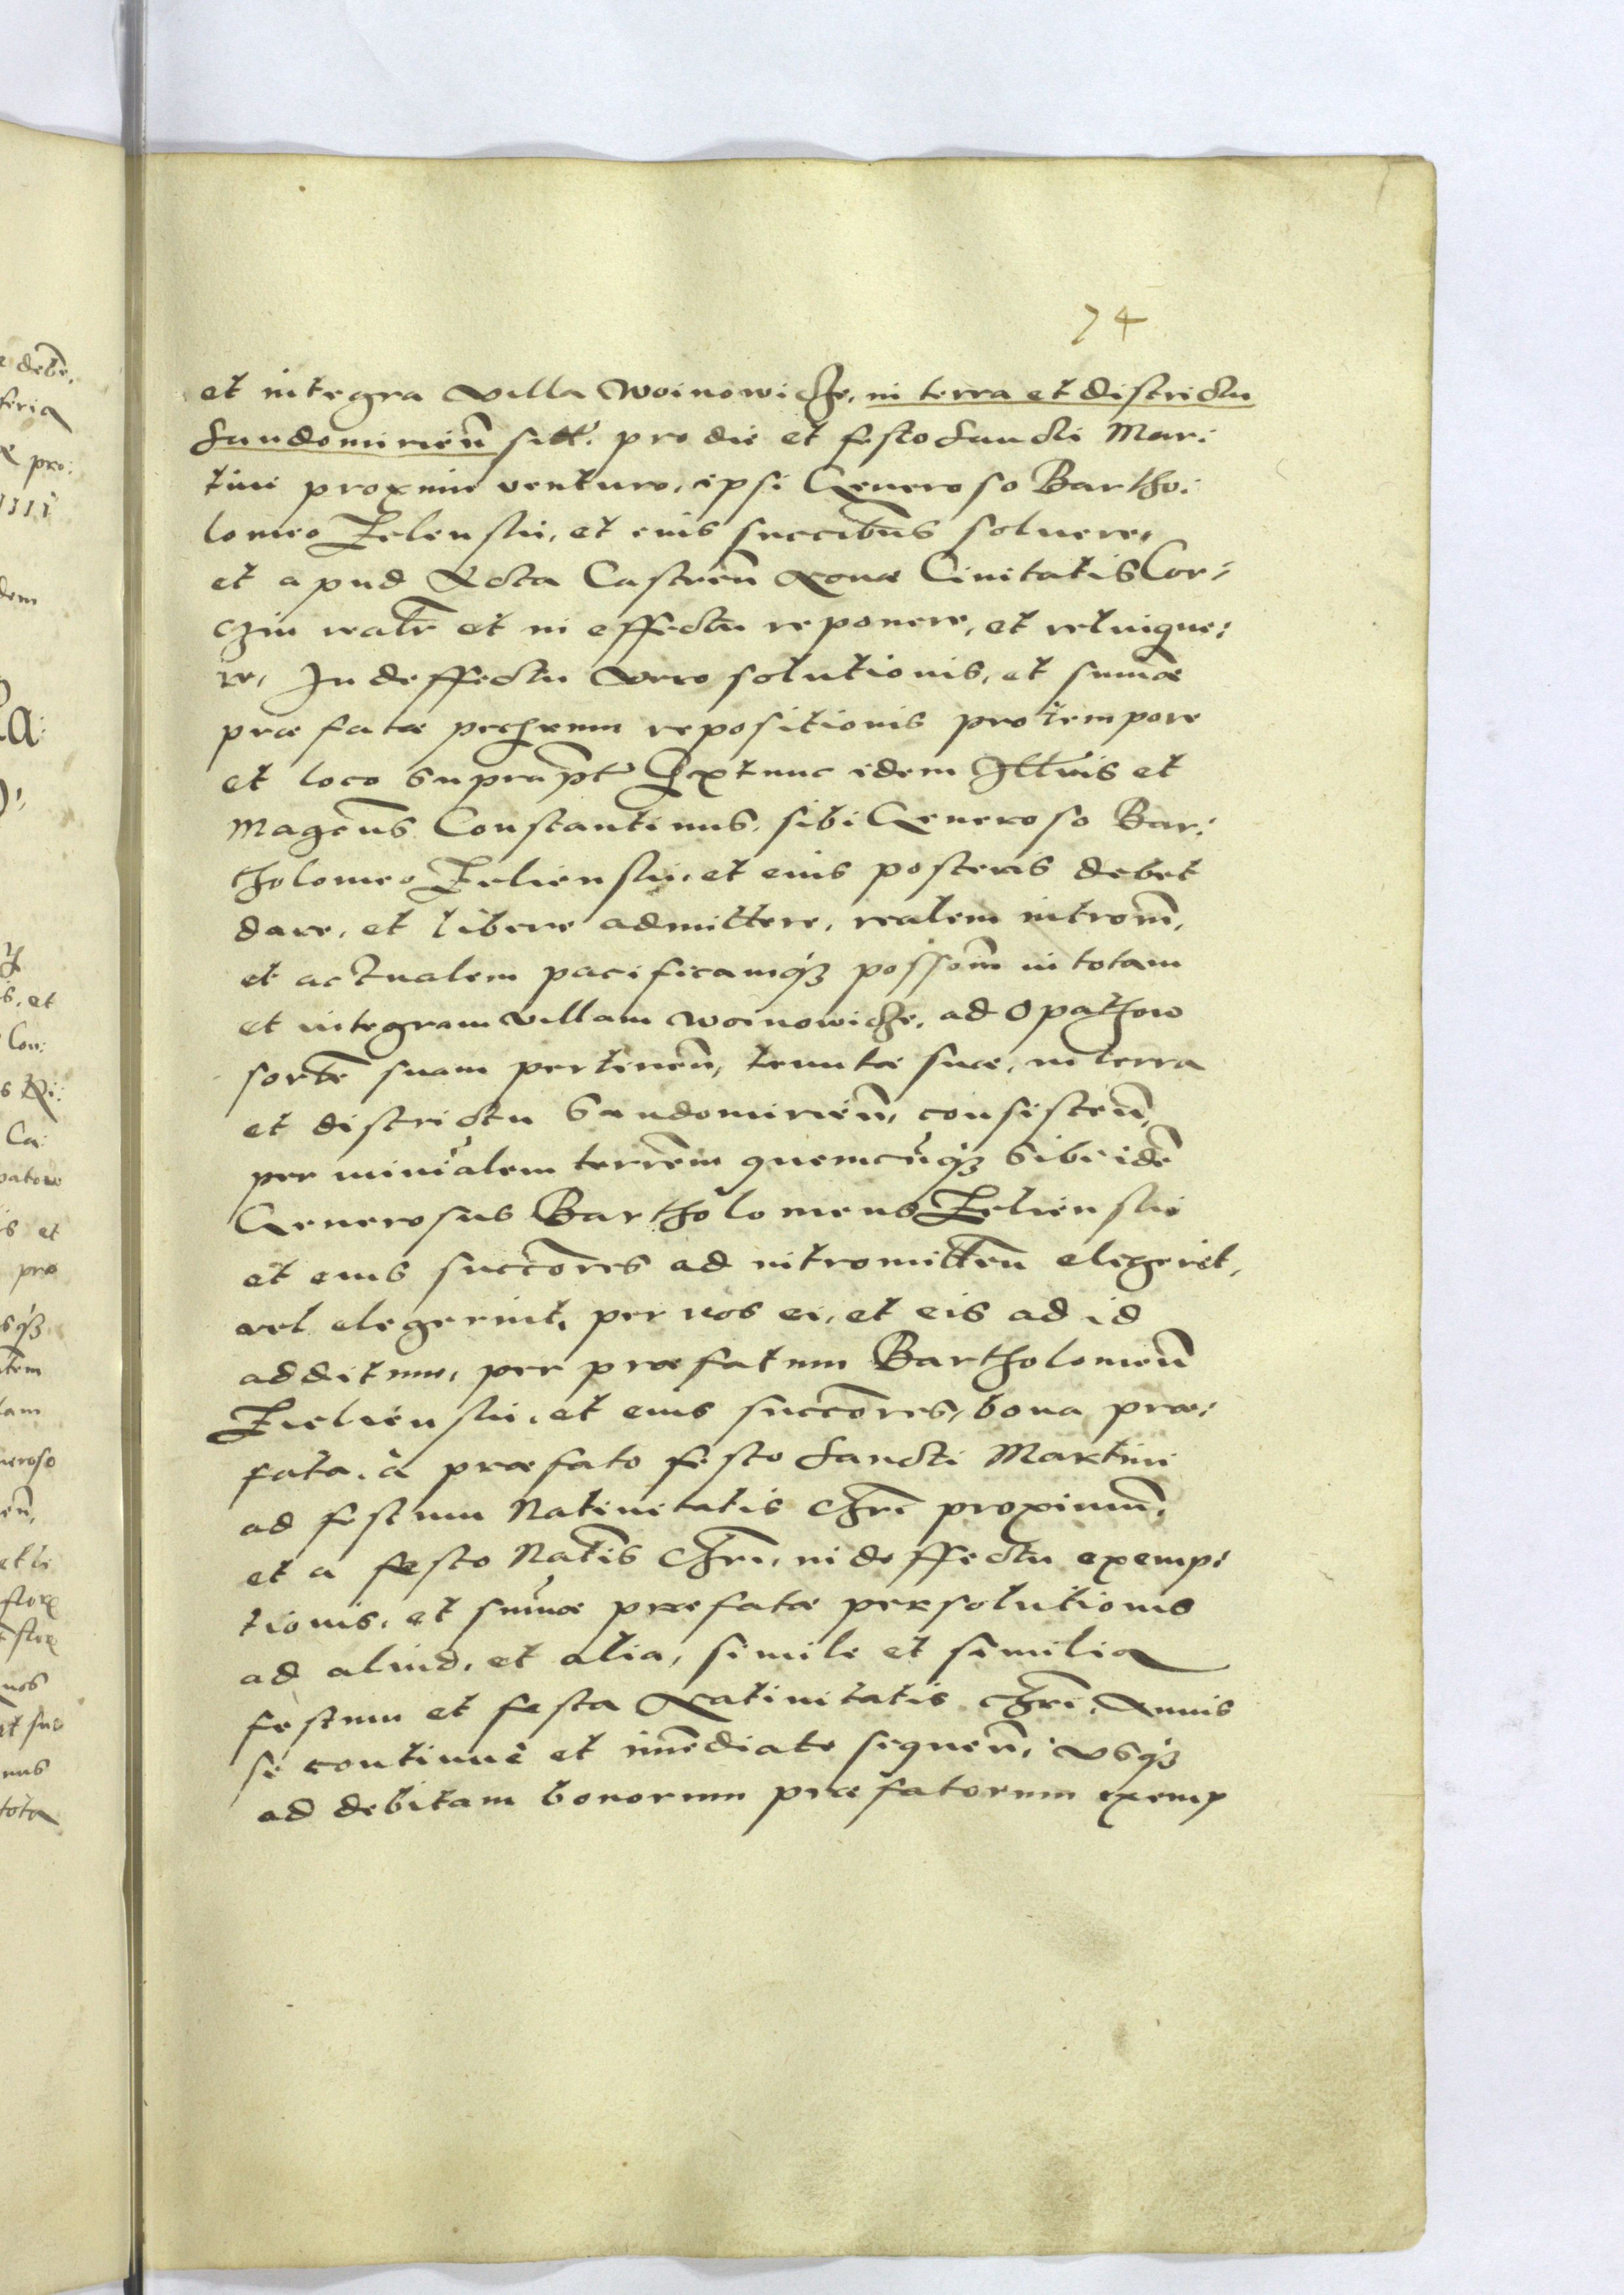 74
et integra villa Woinowicze, in terra et districtu
Sandomirien̄ sitt. pro die et festo Sancti Mar:
tini proxime venturo, ipsi Generoso Bartho:
lomeo Zelenskii, et eius succib̄us soluere,
et apud Acta Castren̄ Nouæ Ciuitatis Cor:
czin realr̄ et in effectu reponere, et relinque:
re, In deffectu vero solutionis, et sum̄æ
præfatæ pecuniæ repositionis pro tempore
et loco suprap̄t Extunc idem Ill̄ris et
Magcūs Constantinus, sibi Generoso Bar:
tholomeo Zelienskii, et eius posteris debet
dare, et libere admittere, realem introm̄,
et actualem pacificamq3 possom̄ in totam
et integram villam Woinowicze, ad Opathow
sortē suam pertinen̄, tenutæ suæ, in terra
et districtu Sandomirien̄, consisten̄,
per minr̄alem terrēm quemcūq3 sibi idē
Generosus Bartholomeus Zelienskii
et eius succōres ad intromitten̄ elegerit,
vel elegerint, per nos ei, et eis ad id
additum, per præfatum Bartholomeū
Zielienskii, et eius succōres, bona præ:
fata, à præfato festo Sancti Martini
ad festum Natiuitatis Chrī proximum,
et a festo Natīs Chrī, in deffectu exemp:
tionis, et sum̄æ præfatæ persolutionis
ad aliud, et alia, simile et similia
festum et festa Natiuitatis Chrī, Annis
se continuè et im̄ediate sequen̄, vsq3
ad debitam bonorum præfatorum exemp